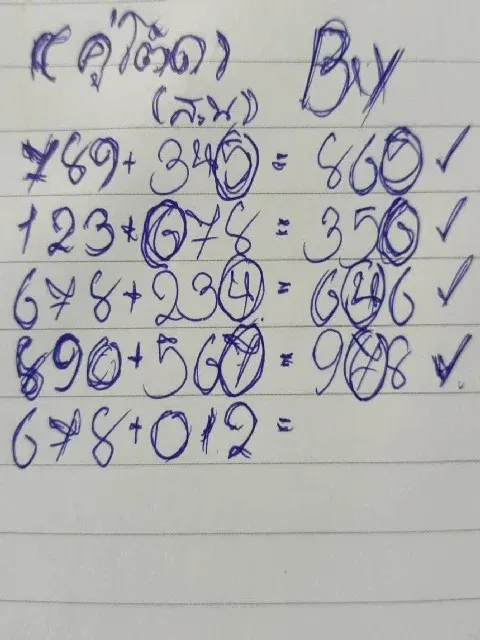 (คู่โต๊ด) Bxy
(สน)
789+345=865 ✓
123+678=356 ✓
678+234=646 ✓
890+567=978 ✓
678+012=